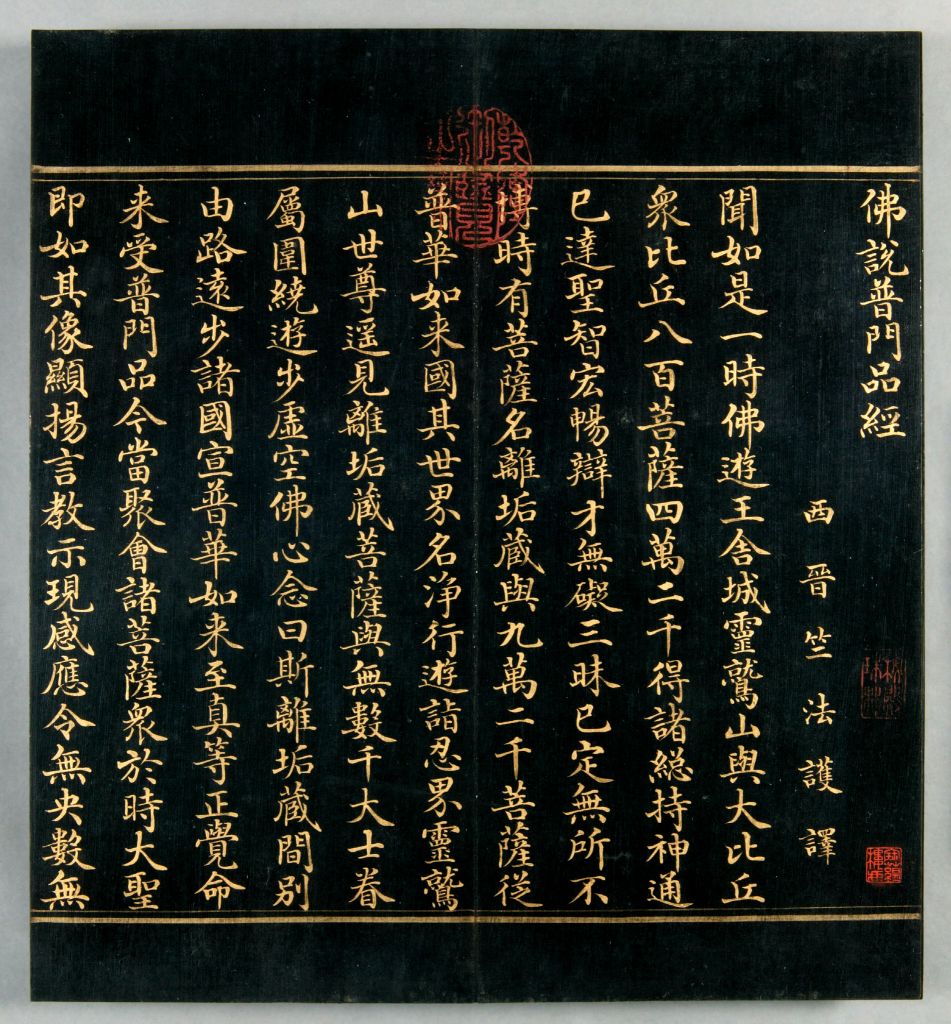 佛說普門品經
西晉竺法護譯
聞如是一時佛遊王舍城靈鷲山與大比丘
衆比丘八百菩薩四萬二千得諸緫持神通
已達聖智宏暢辯才無礙三昧已定無所不
博時有菩薩名離垢藏與九萬二千菩薩從
普華如来國其世界名淨行遊詣忍界靈鷲
山世尊遥見離垢藏菩薩與無數千大士眷
屬圍繞遊步虛空佛心念曰斯離垢藏間別
由路遠步諸國宣普華如来至真等正覺命
来受普門品今當聚會諸菩薩衆於時大聖
即如其像顯揚言教示現感應令無央數無